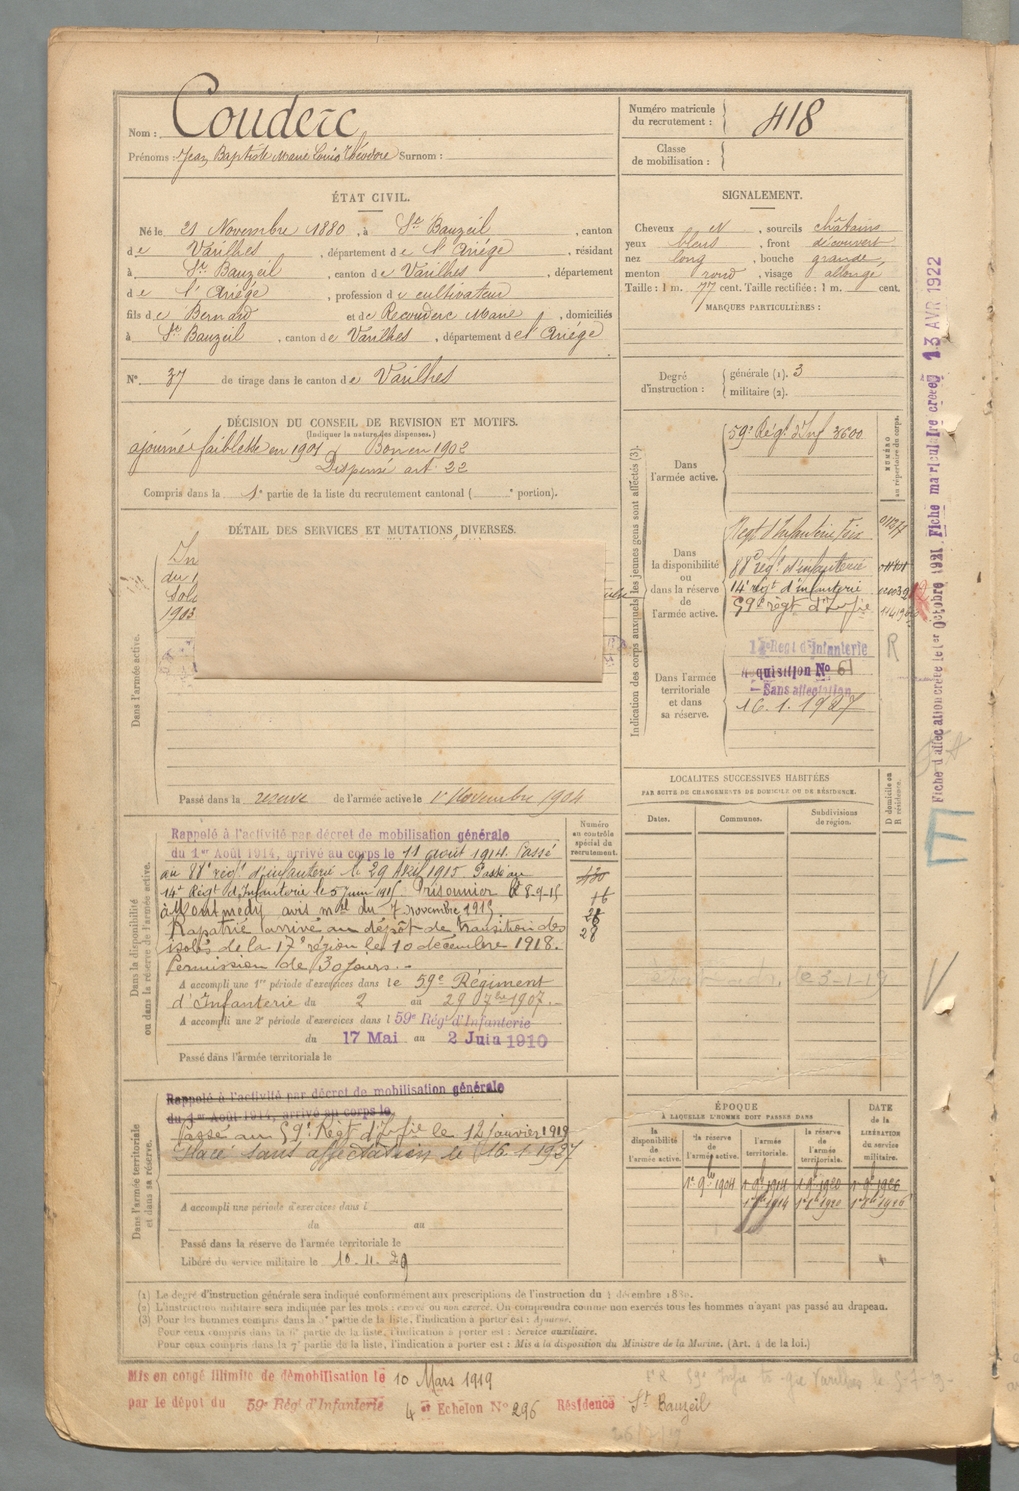 Nom : Couderc
Prénoms : Jean Baptiste Marie Louis Théodore Surnom :
Numéro matricule du recrutement : 418
Classe de mobilisation :
ÉTAT CIVIL.
Né le 21 Novembre 1880, à St Bauzeil, canton
de Varilhes, département de l'Ariége, résidant
à St Bauzeil, canton de Varilhes, département
de l'Ariége, profession de cultivateur
fils de Bernard et de Recouderc Marie, domiciliés
à St Bauzeil, canton de Varilhes, département de l'Ariége
N° 37 de tirage dans le canton de Varilhes
SIGNALEMENT.
Cheveux N, sourcils châtains
yeux bleus, front découvert
nez long, bouche grande,
menton rond, visage allongé
Taille : 1 m. 77 cent. Taille rectifiée : 1 m. cent.
MARQUES PARTICULIÈRES :
Degré d'instruction : générale (1). 3
militaire (2).
DÉCISION DU CONSEIL DE REVISION ET MOTIFS.
(Indiquer la nature des dispenses.)
ajourné faiblesse en 1901 Bon en 1902
Dispensé art. 22
Compris dans la 1e partie de la liste du recrutement cantonal ( e portion).
DÉTAIL DES SERVICES ET MUTATIONS DIVERSES.
Dans l'armée active.
In
du
Sol
1903
Passé dans la réserve de l'armée active le 1er Novembre 1904
Indication des corps auxquels les jeunes gens sont affectés (3).
NUMÉRO au répertoire du corps.
Dans l'armée active.
59e Régt d'Inf 3600
Dans la disponibilité ou dans la réserve de l'armée active.
Régt d'Infanterie Foix
88e régt d'infanterie
14e régt d'infanterie
59e régt d'Infie
Dans l'armée territoriale et dans sa réserve.
Régt d'Infanterie
quisition No 61
Sans affectation
16.1.1927
R
Fiche d'affectation créée le 1er Octobre 1921. Fiche matricul 1re créée 13 AVR 1922
LOCALITÉS SUCCESSIVES HABITÉES
PAR SUITE DE CHANGEMENTS DE DOMICILE OU DE RÉSIDENCE.
D domicile ou R résidence.
Dates. Communes. Subdivisions de région.
le 3-1-19
Dans la disponibilité ou dans la réserve de l'armée active.
Numéro au contrôle spécial du recrutement.
Rappelé à l'activité par décret de mobilisation générale
du 1er Août 1914, arrivé au corps le 11 août 1914. Passé
au 88e régt d'infanterie le 29 Avril 1915 Passé au
14e Régt d'Infanterie le 5 Juin 1915 Prisonnier le 8-9-15
à Montmédy avis mel du 7 novembre 1915
Rapatrié arrivé au dépôt de transition des
isolés de la 17e région le 10 décembre 1918.
Permission de 30 jours.
430
16
28
28
A accompli une 1re période d'exercices dans le 59e Régiment
d'Infanterie du 2 au 29 7bre 1907.
A accompli une 2e période d'exercices dans l 59e Régt d'Infanterie
du 17 Mai au 2 Juin 1910
Passé dans l'armée territoriale le
Dans l'armée territoriale et dans sa réserve.
Rappelé à l'activité par décret de mobilisation générale
du 1er Août 1914, arrivé au corps le
Passé au 59e Régt d'Infie le 12 Janvier 1919
Placé sans affectation le 16.1.1927
A accompli une période d'exercices dans l
du au
Passé dans la réserve de l'armée territoriale le
Libéré du service militaire le 10.11.29
ÉPOQUE
À LAQUELLE L'HOMME DOIT PASSER DANS
DATE de la LIBÉRATION du service militaire.
la disponibilité de l'armée active. la réserve de l'armée active. l'armée territoriale. la réserve de l'armée territoriale.
1er 9bre 1904 1er 9bre 1914 1er 9bre 1920 1er 9bre 1926
(1) Le degré d'instruction générale sera indiqué conformément aux prescriptions de l'instruction du 4 décembre 1889.
(2) L'instruction militaire sera indiquée par les mots : exercé ou non exercé. On comprendra comme non exercés tous les hommes n'ayant pas passé au drapeau.
(3) Pour les hommes compris dans la 5e partie de la liste, l'indication à porter est : Ajourné.
Pour ceux compris dans la 6e partie de la liste, l'indication à porter est : Service auxiliaire.
Pour ceux compris dans la 7e partie de la liste, l'indication à porter est : Mis à la disposition du Ministre de la Marine. (Art. 4 de la loi.)
Mis en congé illimité de démobilisation le 10 Mars 1919
par le dépôt du 59e Régt d'Infanterie 4e Echelon No 296 Résidence St Bauzeil